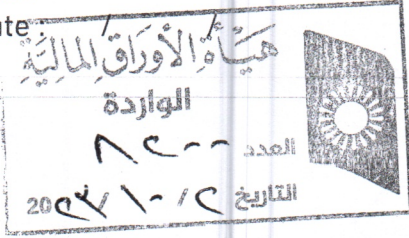 ute : / /
هيأة الأوراق المالية
الواردة
العدد ٨٢٠٠
التاريخ ٢ / ١٠ / 20٢٣